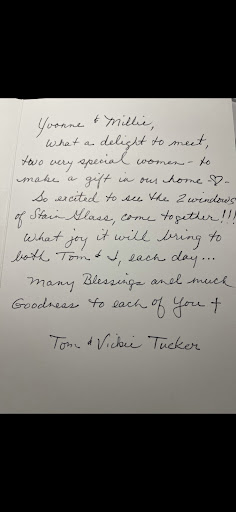 Yvonne & Millie,
What a delight to meet,
two very special women - to
make a gift in our home ♡ -
So excited to see the 2 windows
of Stain Glass, come together!!!
What joy it will bring to
both Tom & I, each day...
Many Blessings and much
Goodness to each of You +
Tom & Vickie Tucker